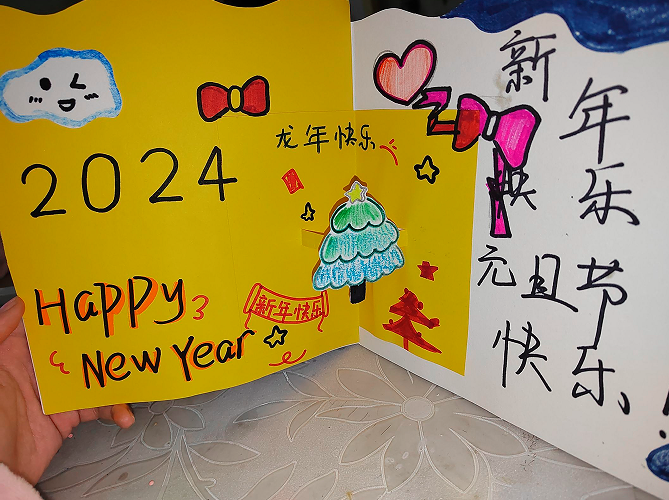 2024
Happy
New Year
龙年快乐
新年快乐
新年
快乐
元旦节
快乐!